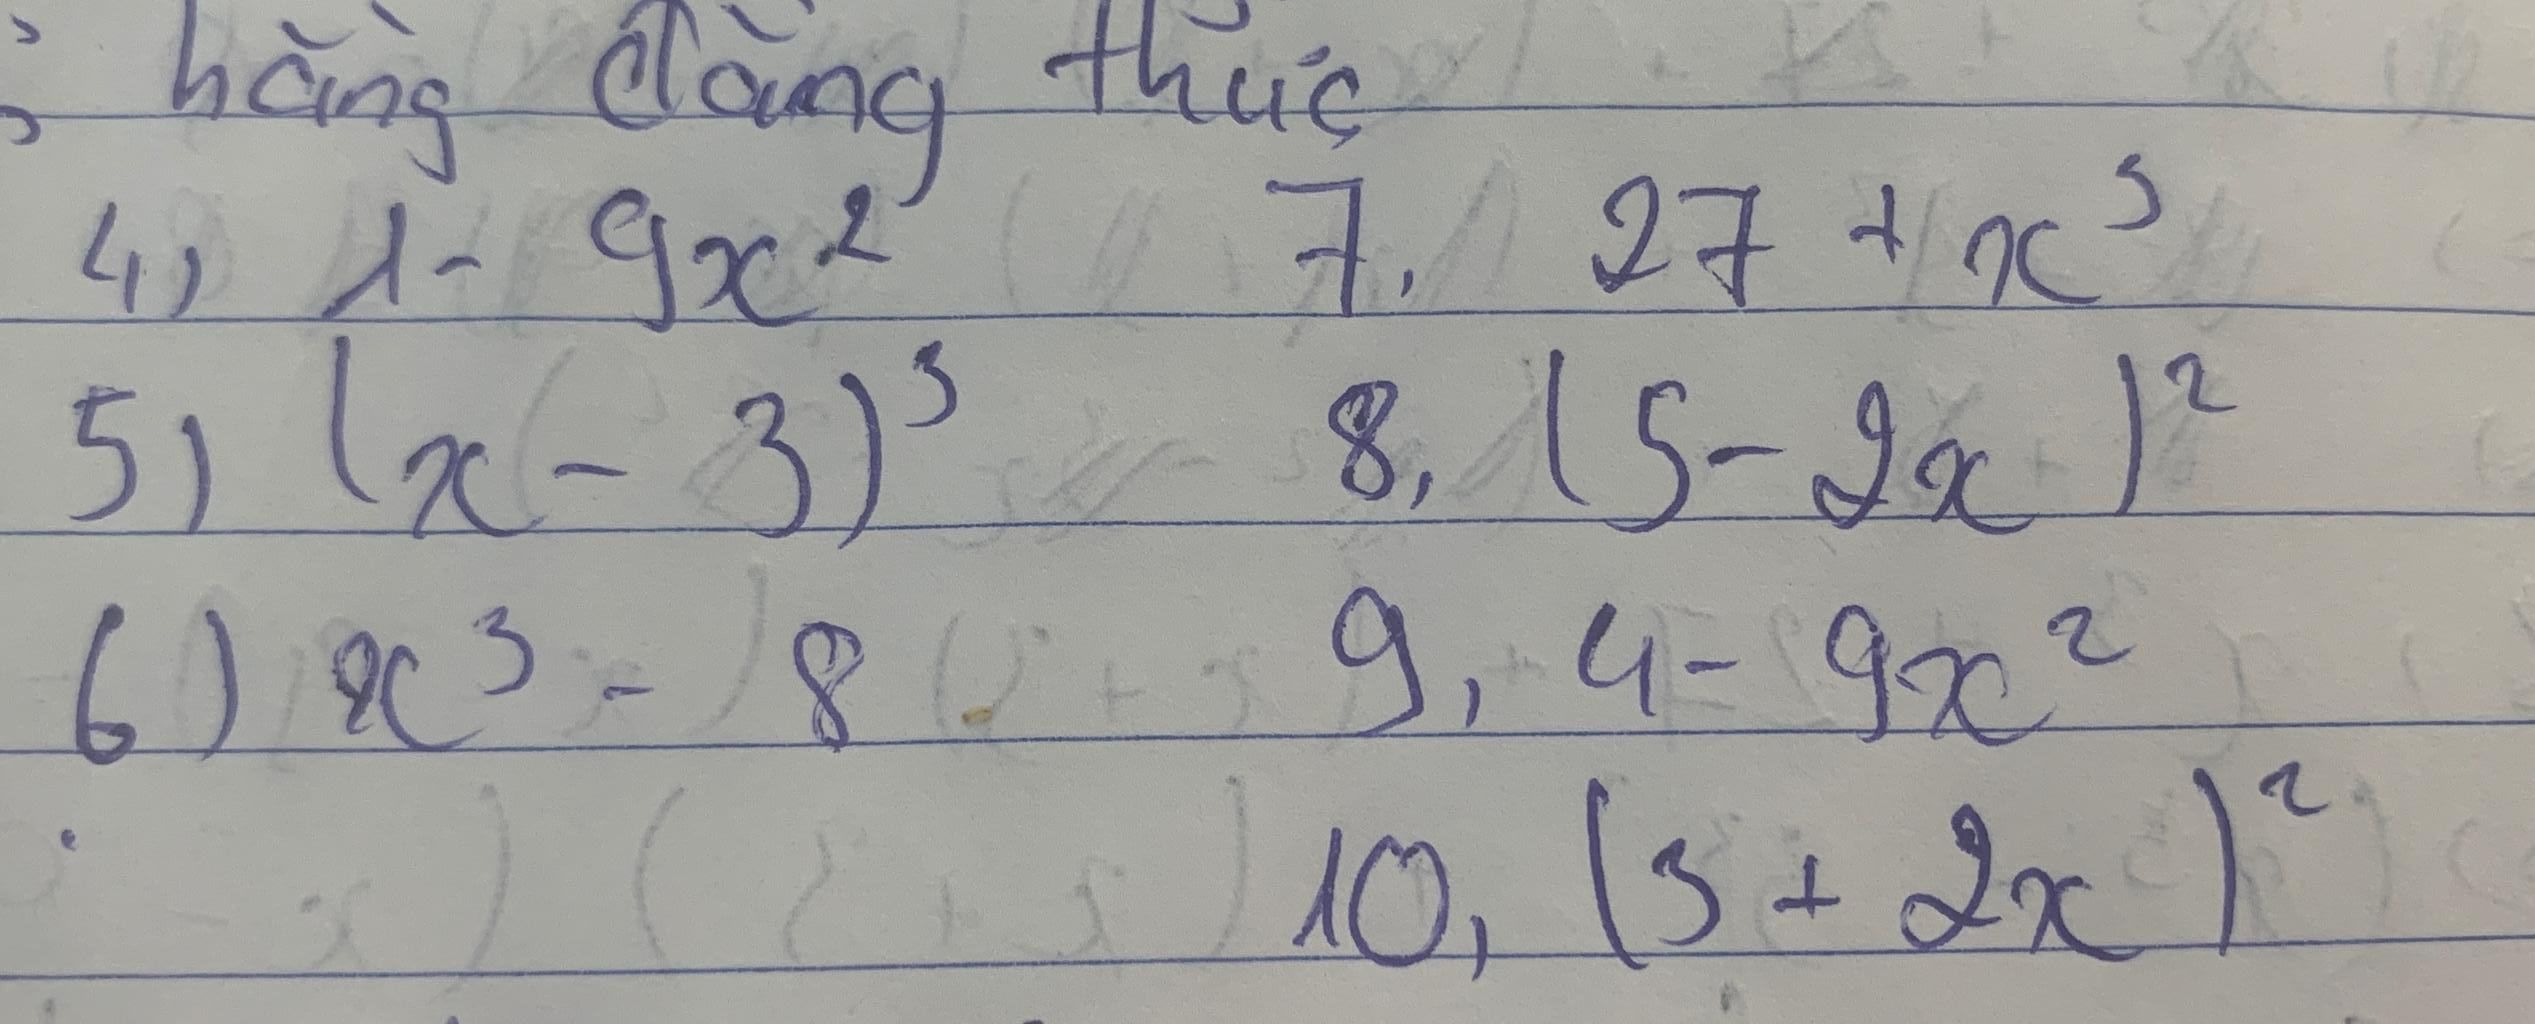 hằng đẳng thức
4, 1 - 9x² 7. 27 + x³
5) (x - 3)³ 8, (5 - 2x)²
6) x³ - 8 9, 4 - 9x²
10, (3 + 2x)²